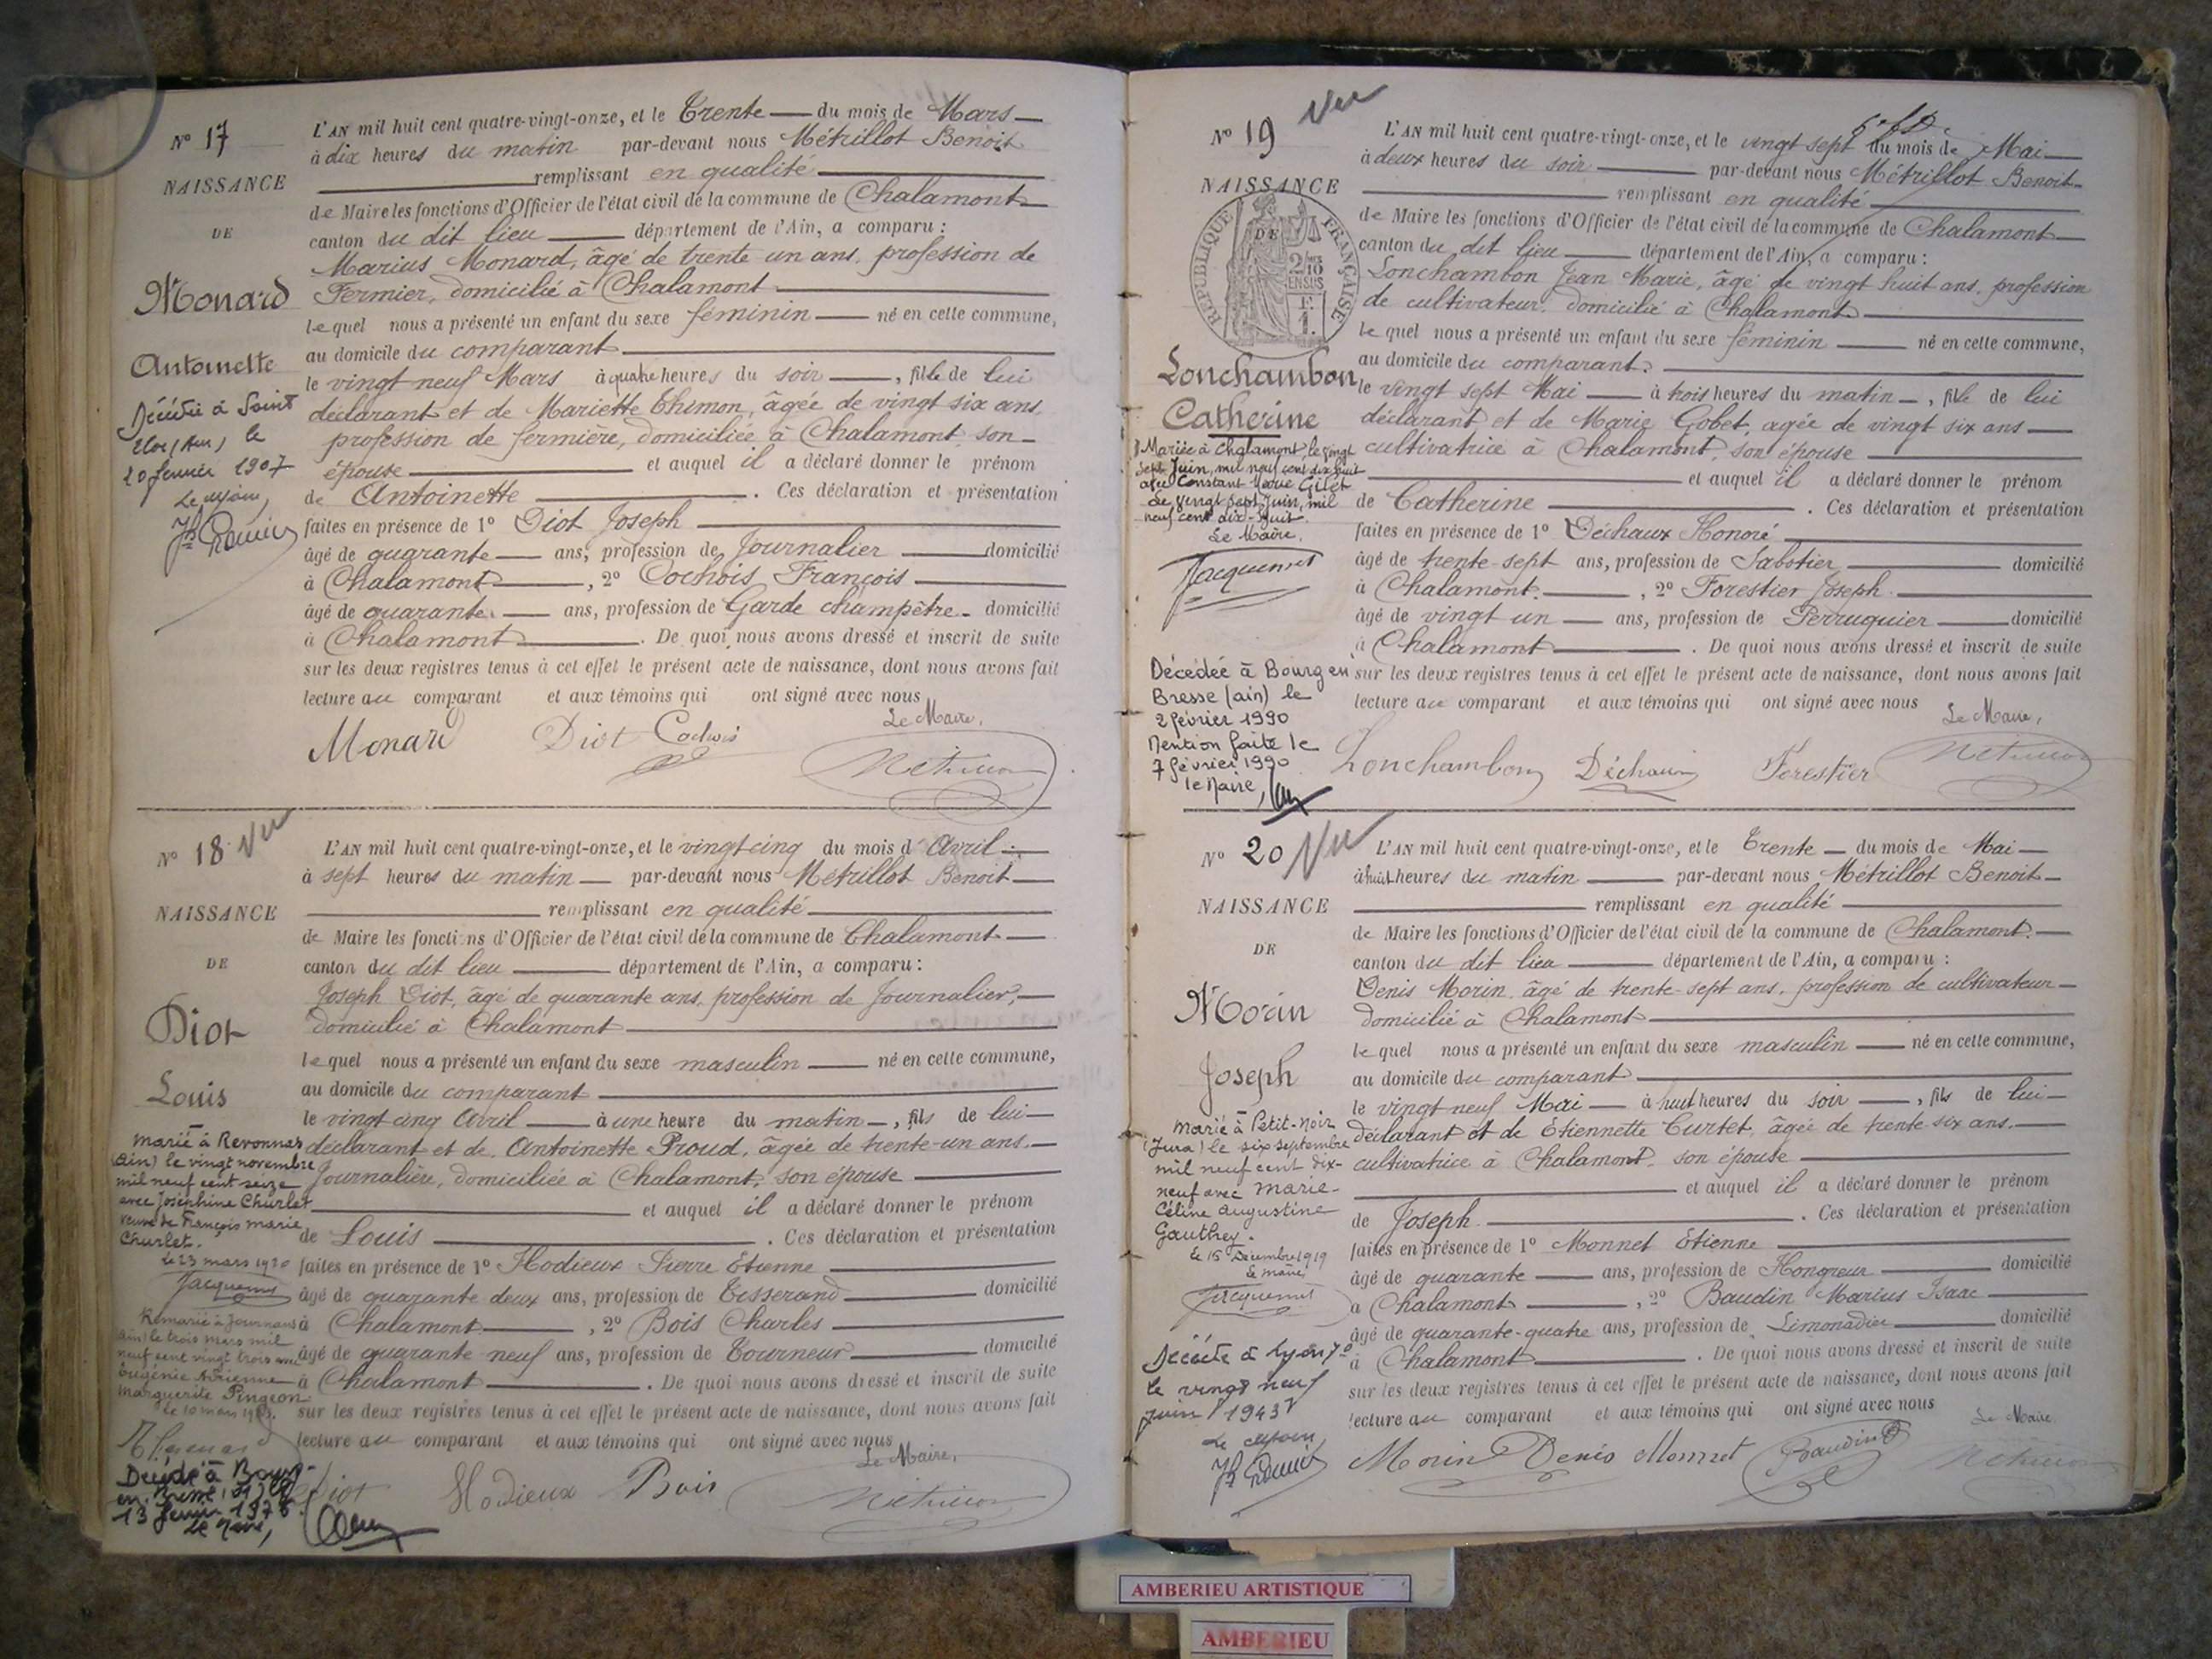 N° 17
NAISSANCE
DE
Monard
Antoinette
Décédée à Saint
Eloi (Ain) le
20 février 1907
L'AN mil huit cent quatre-vingt-onze, et le Trente du mois de Mars
à dix heures du matin par-devant nous Métrillot Benoit
remplissant en qualité
de Maire les fonctions d'Officier de l'état civil de la commune de Chalamont
canton du dit lieu département de l'Ain, a comparu :
Marius Monard, âgé de trente un ans, profession de
Fermier, domicilié à Chalamont
lequel nous a présenté un enfant du sexe féminin né en cette commune,
au domicile du comparant
le vingt neuf Mars à quatre heures du soir, fille de lui
déclarant et de Mariette Thimon, âgée de vingt six ans,
profession de fermière, domiciliée à Chalamont, son
épouse et auquel il a déclaré donner le prénom
de Antoinette. Ces déclaration et présentation
faites en présence de 1° Diot Joseph
âgé de quarante ans, profession de Journalier domicilié
à Chalamont, 2° Cochois François
âgé de quarante ans, profession de Garde champêtre domicilié
à Chalamont. De quoi nous avons dressé et inscrit de suite
sur les deux registres tenus à cet effet le présent acte de naissance, dont nous avons fait
lecture au comparant et aux témoins qui ont signé avec nous
Le Maire,
Monard Diot Cochois
N° 18 Vu
NAISSANCE
DE
Diot
Louis
Marié à Revonnas
(Ain) le vingt novembre
mil neuf cent seize
avec Joséphine Churlet
veuve de François Marie
Churlet.
le 23 mars 1920
Jacquemet
Remarié à Journans
(Ain) le trois mars mil
neuf cent vingt trois avec
Eugénie Adrienne
Marguerite Pingeon
le 10 mars
Décédé à Bourg-
en-Bresse (01) le
13 février 1976
le Maire,
L'AN mil huit cent quatre-vingt-onze, et le vingt cinq du mois d'Avril
à sept heures du matin par-devant nous Métrillot Benoit
remplissant en qualité
de Maire les fonctions d'Officier de l'état civil de la commune de Chalamont
canton du dit lieu département de l'Ain, a comparu :
Joseph Diot, âgé de quarante ans, profession de Journalier,
domicilié à Chalamont
lequel nous a présenté un enfant du sexe masculin né en cette commune,
au domicile du comparant
le vingt cinq Avril à une heure du matin, fils de lui
déclarant et de Antoinette Proud, âgée de trente-un ans,
Journalière, domiciliée à Chalamont, son épouse
et auquel il a déclaré donner le prénom
de Louis. Ces déclaration et présentation
faites en présence de 1° Hodieux Pierre Etienne
âgé de quarante deux ans, profession de Tisserand domicilié
à Chalamont, 2° Bois Charles
âgé de quarante neuf ans, profession de Tourneur domicilié
à Chalamont. De quoi nous avons dressé et inscrit de suite
sur les deux registres tenus à cet effet le présent acte de naissance, dont nous avons fait
lecture au comparant et aux témoins qui ont signé avec nous
Le Maire,
Diot Hodieux Bois
N° 19 Vu
NAISSANCE
DE
RÉPUBLIQUE FRANÇAISE
2/10 EN SUS
Lonchambon
Catherine
Mariée à Chalamont, le vingt
sept Juin, mil neuf cent dix huit
avec Constant Marie Gillet
Le vingt sept Juin, mil
neuf cent dix-huit.
Le Maire,
Jacquemet
Décédée à Bourg en
Bresse (ain) le
2 février 1990
Mention faite le
7 février 1990
le Maire,
L'AN mil huit cent quatre-vingt-onze, et le vingt sept du mois de Mai
à deux heures du soir par-devant nous Métrillot Benoit
remplissant en qualité
de Maire les fonctions d'Officier de l'état civil de la commune de Chalamont
canton du dit lieu département de l'Ain, a comparu :
Lonchambon Jean Marie, âgé de vingt huit ans, profession
de cultivateur, domicilié à Chalamont
lequel nous a présenté un enfant du sexe féminin né en cette commune,
au domicile du comparant
le vingt sept Mai à trois heures du matin, fille de lui
déclarant et de Marie Gobet, agée de vingt six ans
cultivatrice à Chalamont, son épouse
et auquel il a déclaré donner le prénom
de Catherine. Ces déclaration et présentation
faites en présence de 1° Déchaux Honoré
âgé de trente-sept ans, profession de Sabotier domicilié
à Chalamont, 2° Forestier Joseph
âgé de vingt un ans, profession de Perruquier domicilié
à Chalamont. De quoi nous avons dressé et inscrit de suite
sur les deux registres tenus à cet effet le présent acte de naissance, dont nous avons fait
lecture au comparant et aux témoins qui ont signé avec nous
Le Maire,
Lonchambon Déchaux Forestier
N° 20 Vu
NAISSANCE
DE
Morin
Joseph
Marié à Petit-Noir
(Jura) le six septembre
mil neuf cent dix-
neuf avec Marie-
Céline Augustine
Gauthey.
le 15 Décembre 1919
Le maire
Jacquemet
Décédé à Lyon 7e
le vingt neuf
juin 1943
L'AN mil huit cent quatre-vingt-onze, et le Trente du mois de Mai
à huit heures du matin par-devant nous Métrillot Benoit
remplissant en qualité
de Maire les fonctions d'Officier de l'état civil de la commune de Chalamont
canton du dit lieu département de l'Ain, a comparu :
Denis Morin, âgé de trente-sept ans, profession de cultivateur
domicilié à Chalamont
lequel nous a présenté un enfant du sexe masculin né en cette commune,
au domicile du comparant
le vingt neuf Mai à huit heures du soir, fils de lui
déclarant et de Etiennette Curtet, âgée de trente six ans,
cultivatrice à Chalamont, son épouse
et auquel il a déclaré donner le prénom
de Joseph. Ces déclaration et présentation
faites en présence de 1° Monnet Etienne
âgé de quarante ans, profession de Hongreur domicilié
à Chalamont, 2° Baudin Marius Isaac
âgé de quarante-quatre ans, profession de Limonadier domicilié
à Chalamont. De quoi nous avons dressé et inscrit de suite
sur les deux registres tenus à cet effet le présent acte de naissance, dont nous avons fait
lecture au comparant et aux témoins qui ont signé avec nous
Le Maire
Morin Denis Monnet Baudin
AMBERIEU ARTISTIQUE
AMBERIEU